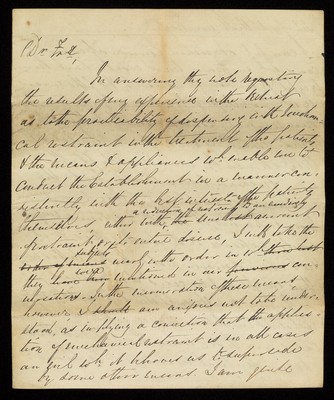 Dr Frd,
In answering thy note requesting
the results of my experience in the Retreat
as to the practicability of dispensing with mechani
cal restraint in the treatment of the patients,
& the means & appliances wh. enable us to
conduct the Establishment in a manner con
sistently with the best interests of the patients
themselves, either with a minimum of restraint or an
amount
of restraint, I will take the
subjects nearly in the order in wh.
they were mentioned in our con
versation. In the enumeration of these means,
however, I am anxious not to be under
stood, as implying a conviction that the applica
tion of mechanical restraint is in all cases
an evil wh. it behoves us to supersede
by some other means. I am quite